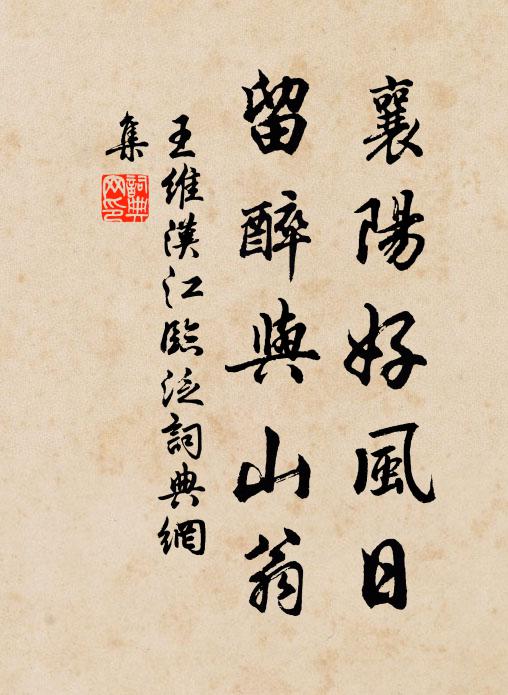 襄陽好風日
留醉與山翁
王維漢江臨泛詞典網
集
詞典
网印